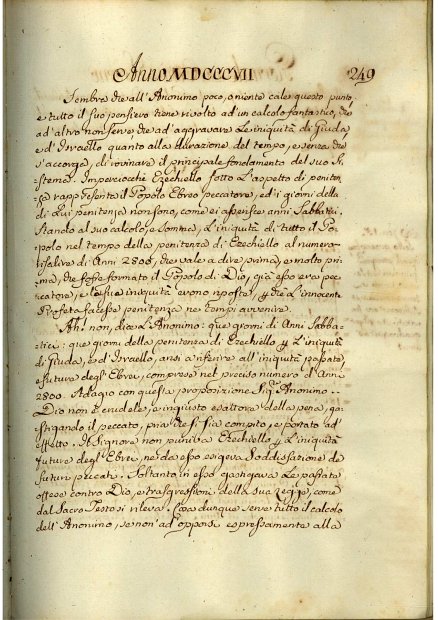 Anno MDCCCVII 249
Sembra che all' Anonimo poco, o niente cale questo punto,
e tutto il suo pensiero tiene rivolto ad un calcolo fantastico, che
ad altro non serve che ad aggravare le iniquità di Giuda,
e d' Israello quanto alla durazione del tempo, e senza che
s'accorga, di rovinare il principale fondamento del suo Si-
stema. Imperciocchè Ezechiello sotto l'aspetto di peniten-
za rappresenta il Popolo Ebreo peccatore, ed i giorni della
di lui penitenza non sono, come ei asserisce anni Sabbatici.
Stando al suo calcolo, e somma, l'iniquità di tutto il Po-
polo nel tempo della penitenza di Ezechiello al numero
salire di Anni 2800, che vale a dire prima, e molto pri-
ma, che fosse formato il Popolo di Dio, già esso era pec-
catore, e le sue iniquità erono riposte, l'innocente
Profeta facesse penitenza ne' tempi avvenire.
Ah! non, dice l'Anonimo: que' giorni di Anni Sabba-
tici: que' giorni della penitenza di Ezechiello p l'iniquità
di Giuda, e d' Israello, ansi a riferire all' iniquità passate,
e future degl' Ebrei, comprese nel preciso numero d' Anni
2800. Adagio con questa proposizione Sigr Anonimo.
Dio non è crudele, o iniquo esattore della pena, ga-
stigando il peccato, pria che si sia compito, e portato ad
effetto. Il Signore non puniva Ezechiello p l'iniquità
future degl' Ebrei ne da esso esigeva soddisfazione de'
futuri peccati. Soltanto in esso gastigava le passate
offese contro Dio, e trasgressioni della sua legge, come
dal Sacro Testo si rileva. Cosa dunque serve tutto il calcolo
dell' Anonimo, se non' ad opporsi espressamente alla